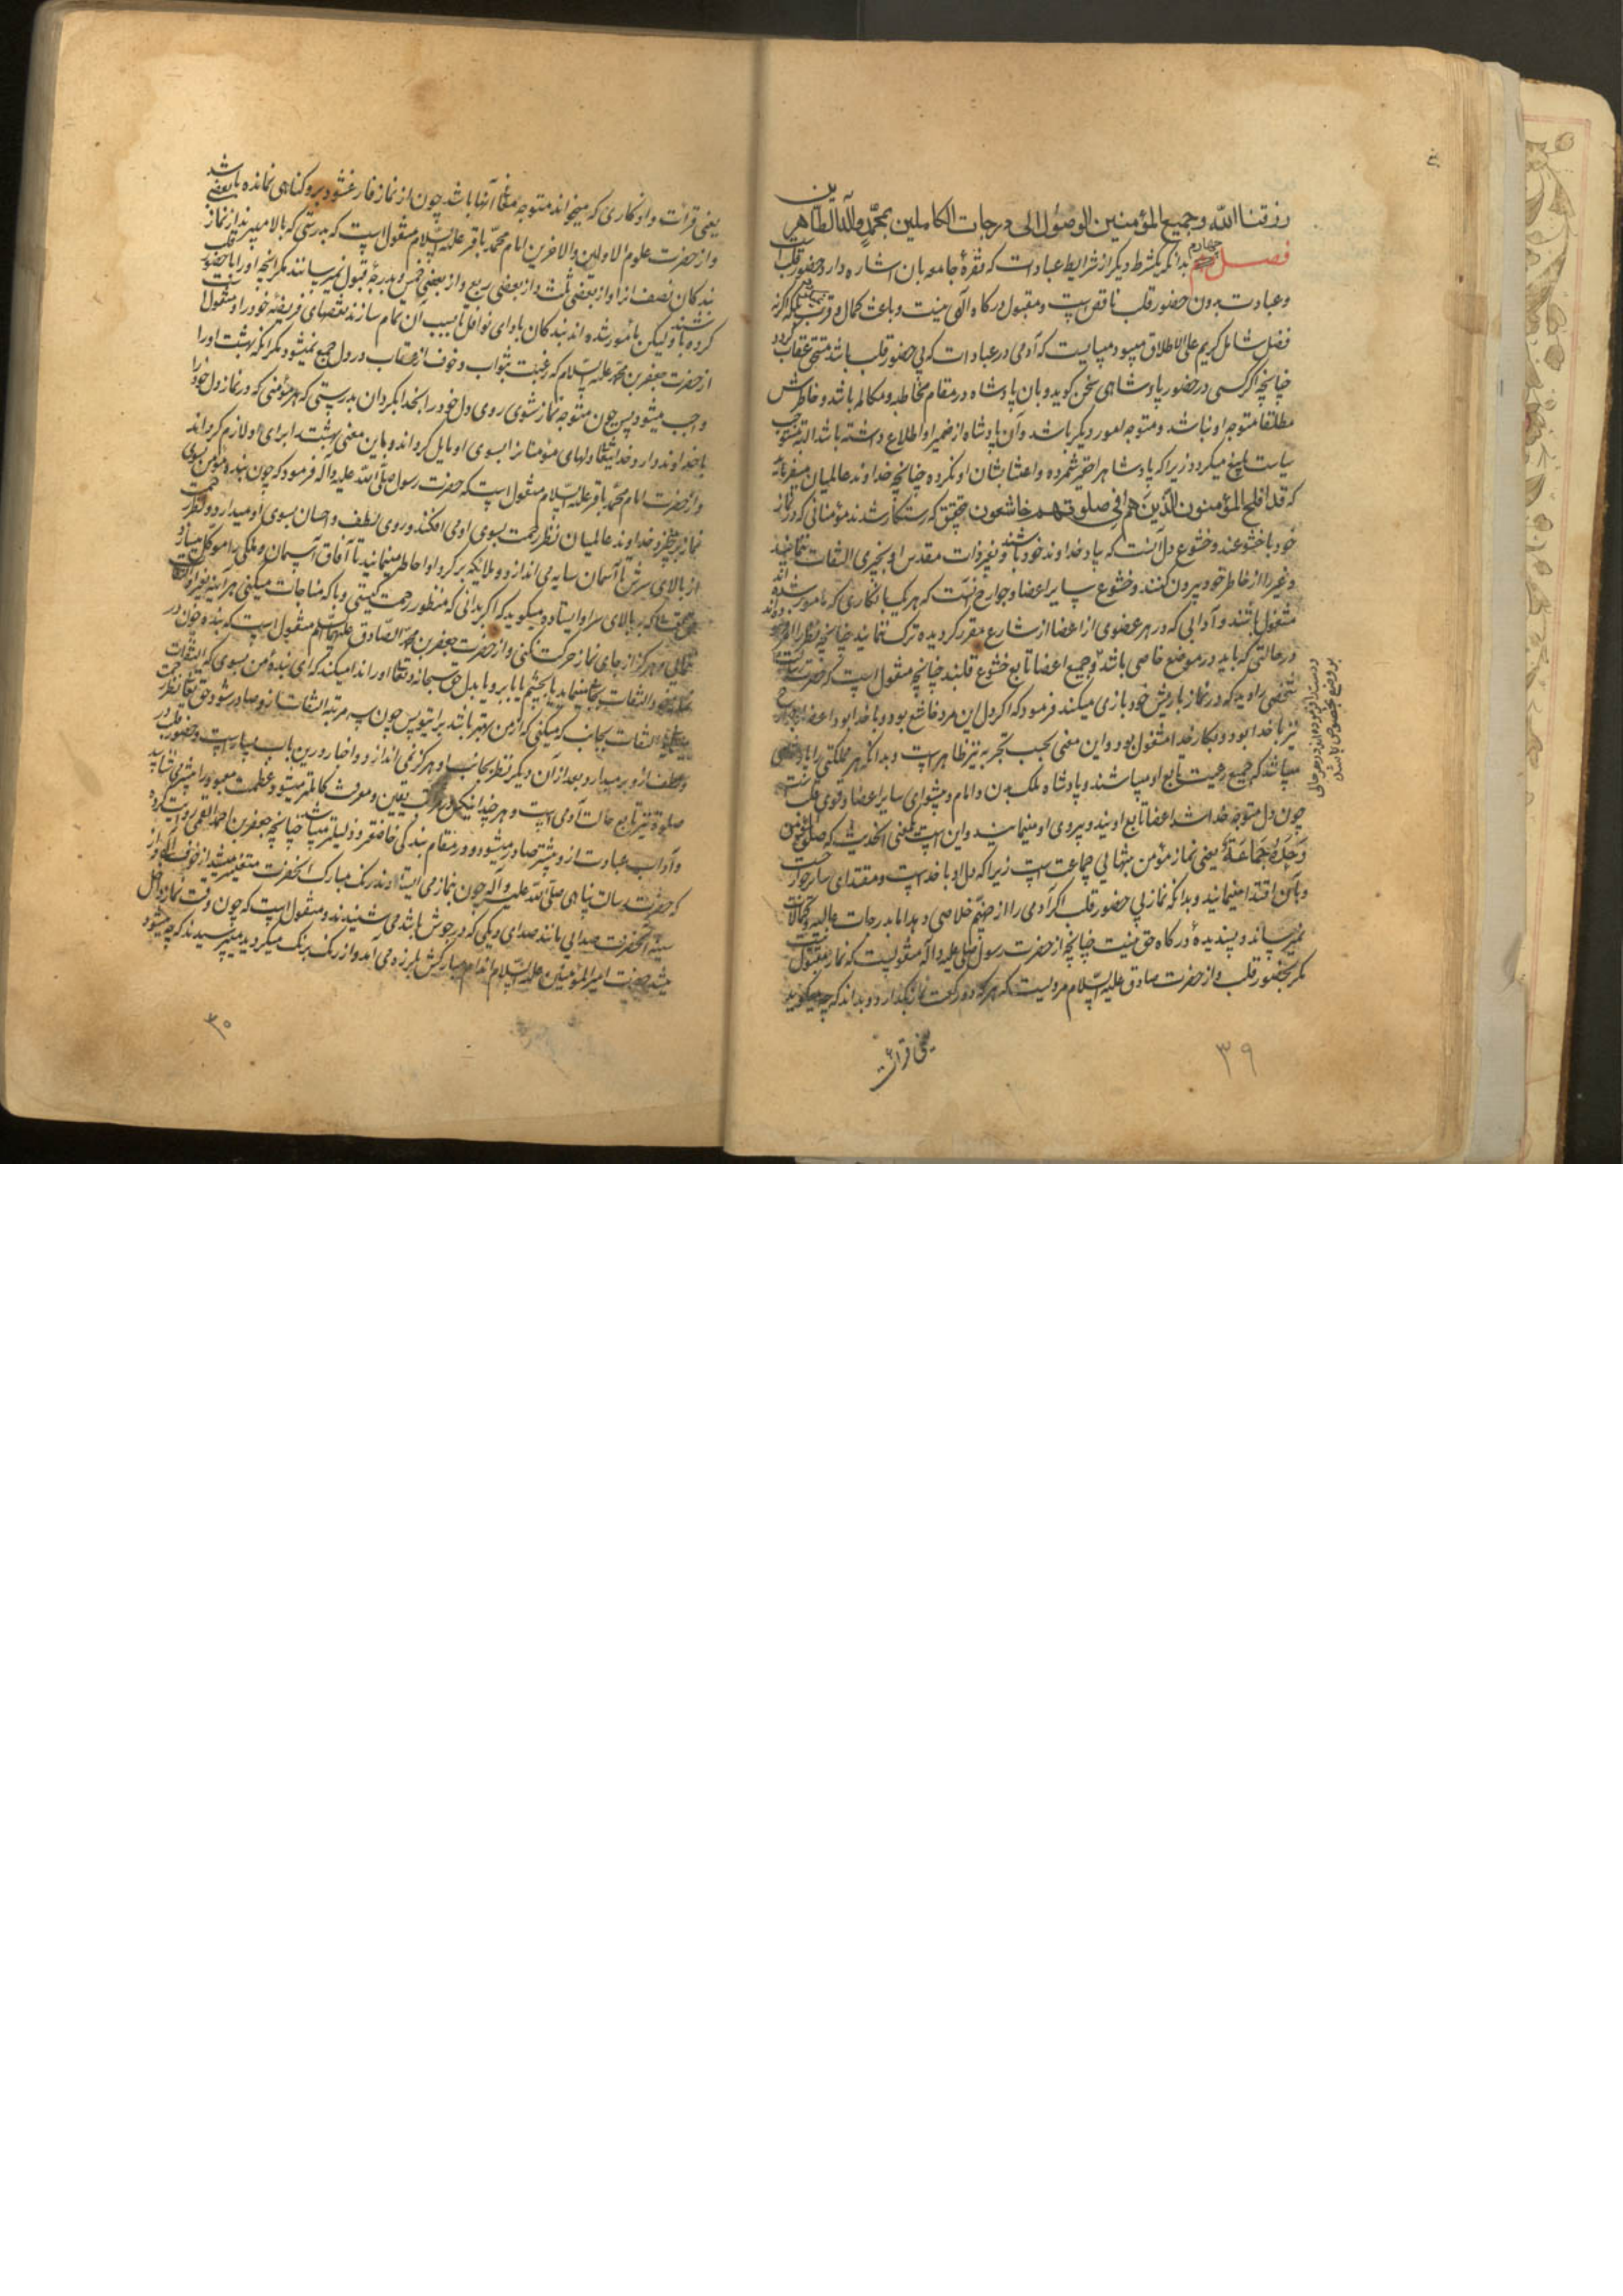 رزقنا الله وجميع المؤمنين الوصول الى درجات الكاملين بمحمد وآله الطاهرين
فصل چهارم بدانكه يكشرط ديگر از شرايط عبادات كه فقرهٔ جامعه بان اشاره دارد حضور قلب است
و عبادت بدون حضور قلب ناقص است و مقبول درگاه الهى نيست و باعث كمال و قرب نميشود بلكه اگر نه
فضل شامل كريم على الاطلاق ميبود ميبايست كه آدمى در عبادات كه بى حضور قلب باشد مستحق عقاب گردد
چنانچه اگر كسى در حضور پادشاهى سخن گويد و بان پادشاه در مقام مخاطبه و مكالمه باشد و خاطرش
مطلقا متوجه او نباشد و متوجه امور ديگر باشد و آن پادشاه از ضمير او اطلاع داشته باشد البته مستوجب
سياست بليغ ميگردد زيرا كه پادشاه را حقير شمرده و اعتنا بشان او نكرده چنانچه خداوند عالميان ميفرمايد
كه قد افلح المؤمنون الذين هم فى صلوتهم خاشعون بتحقيق كه رستگار شدند مؤمنانى كه در نماز
خود با خشوعند و خشوع دل آنست كه بياد خداوند خود باشند و بغير ذات مقدس او بچيزى التفات ننمايند
و غير را از خاطر خود بيرون كنند و خشوع ساير اعضا و جوارح آنست كه هر يك بانكارى كه مامور شده‌اند
مشغول باشند و آدابى كه در هر عضوى از اعضا از شارع مقرر گرديده ترك ننمايند چنانچه نظر را
در حالتى كه بايد در موضع خاصى باشد و جميع اعضا تابع خشوع قلبند چنانچه منقول است كه حضرت رسالت
شخصى را ديد كه در نماز با ريش خود بازى ميكند فرمود كه اگر دل اين مرد خاشع بود و با خدا بود اعضا و جوارح
نيز با خدا بود و بكار خدا مشغول بود و اين معنى بحسب تجربه نيز ظاهر است و بدانكه هر مملكتى را پادشاهى
ميباشد كه جميع رعيت تابع او ميباشند و پادشاه ملك بدن و امام و پيشواى ساير اعضا و قوى قلب است
چون دل متوجه خدا شد اعضا تابع اويند و پيروى او مينمايند و اين است معنى الحديث كه صلوة المؤمن
وحده جماعة يعنى نماز مؤمن بتنهايى جماعت است زيرا كه دل او با خداست و مقتداى ساير جوارح است
و بآن اقتدا مينمايند و بدانكه نماز بى حضور قلب اگر آدمى را از جهنم خلاصى دهد اما بدرجات عاليه و كمالات
نميرساند و پسنديدهٔ درگاه حق نيست چنانچه از حضرت رسول صلى عليه و آله منقولست كه نماز مقبول نيست
مگر بحضور قلب و از حضرت صادق عليه السلام مرويست كه هر كه دو ركعت نماز بگذارد و بداند كه چه ميگويد
يعنى قرائت
٣٩
يعنى قرائت و اذكارى كه ميخواند متوجه معانى آنها باشد چون از نماز فارغ شود برو گناهى نمانده باشد
و از حضرت علوم الاولين والاخرين امام محمد باقر عليه السلام منقول است كه بدرستى كه بالا ميبرند از نماز بعضى
بندگان نصف از او از بعضى ثلث و از بعضى ربع و از بعضى خمس و بدرجهٔ قبول نميرسانند مگر آنچه او را با حضور قلب
كرده باشند و ليكن مأمور شده اند بندگان باداى نوافل تا بسبب آن تمام سازند نقصهاى فريضهٔ خود را و منقول است
از حضرت جعفر بن محمد عليه السلام كه رغبت بثواب و خوف از عقاب در دل جمع نميشود مگر آنكه بهشت او را
واجب ميشود پس چون متوجه نماز شوى روى دل خود را بخدا بگردان بدرستى كه هر مؤمنى كه در نماز دل خود را
با خداوند دارد خدايتعالى دلهاى مؤمنانرا بسوى او مايل گرداند و باين معنى بهشت را براى او لازم گرداند
و از حضرت امام محمد باقر عليه السلام منقول است كه حضرت رسول صلى الله عليه و آله فرمود كه چون بنده مؤمن بسوى
نماز برخيزد خداوند عالميان نظر رحمت بسوى او مى افكند و روى لطف و احسان بسوى او ميدارد و نظر رحمت
از بالاى سرش تا آسمان سايه مى اندازد و ملائكه بر گرد او احاطه مينمايند تا آفاق آسمان و ملكى را موكل ميسازد
كه بر بالاى سر او ايستاده ميگويد كه اگر بدانى كه منظور رحمت كيستى و با كه مناجات ميكنى هرآينه بغير او التفات
ننمائى و هرگز از جاى نماز حركت نكنى و از حضرت جعفر بن محمد الصادق عليه السلام منقول است كه بنده چون در
نماز خود التفات بجائى مينمايد يا بچشم يا بابرو يا بدل حق سبحانه وتعالى او را ندا ميكند كه اى بندهٔ من بسوى كه التفات
التفات بجانب كه ميكنى كه از من بهتر باشد براى تو پس چون سه مرتبه التفات از او صادر شود حق تعالى نظر رحمت
و لطف ازو برميدارد و بعد از آن ديگر نظر بجانب او هرگز نمى اندازد و اخبار درين باب بسيار است و حضور قلب در
صلوة نيز تابع حالت آدمى است و هر چند يقين و معرفت كاملتر ميشود و عظمت معبود را بيشتر ميشناسد
و آداب عبادت ازو بيشتر صادر ميشود و در مقام بندگى خاضعتر و ذليلتر ميباشد چنانچه جعفر بن احمد القمى روايت كرده
كه حضرت رسالت پناهى صلى الله عليه و آله چون بنماز مى ايستادند رنگ مبارك آنحضرت متغير ميشد از خوف الهى و از
سينهٔ آنحضرت صدايى مانند صداى ديگى كه در جوش باشد مى شنيدند و منقول است كه چون وقت نماز داخل
ميشد حضرت امير المؤمنين عليه السلام اندام مباركش بلرزه مى آمد و از رنگ برنگ ميگرديد ميپرسيدند كه چه ميشود
٣٠